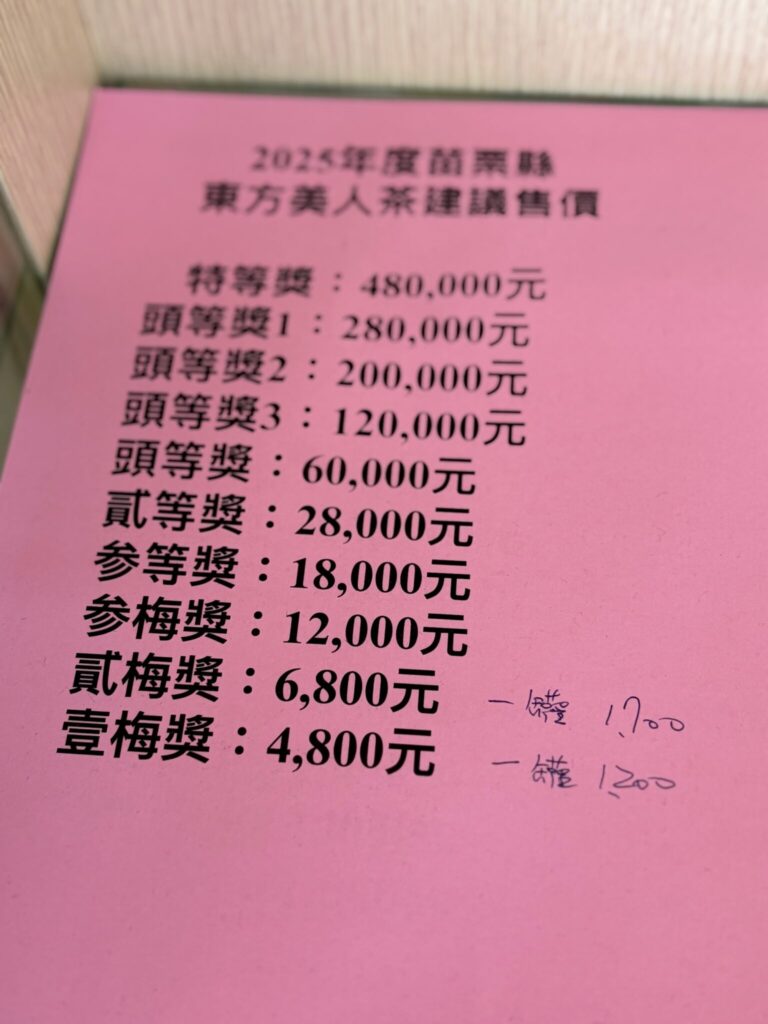 2025年度苗栗縣
東方美人茶建議售價
特等獎：480,000元
頭等獎1：280,000元
頭等獎2：200,000元
頭等獎3：120,000元
頭等獎：60,000元
貳等獎：28,000元
参等獎：18,000元
参梅獎：12,000元
貳梅獎：6,800元 一罐 1,700
壹梅獎：4,800元 一罐 1,200